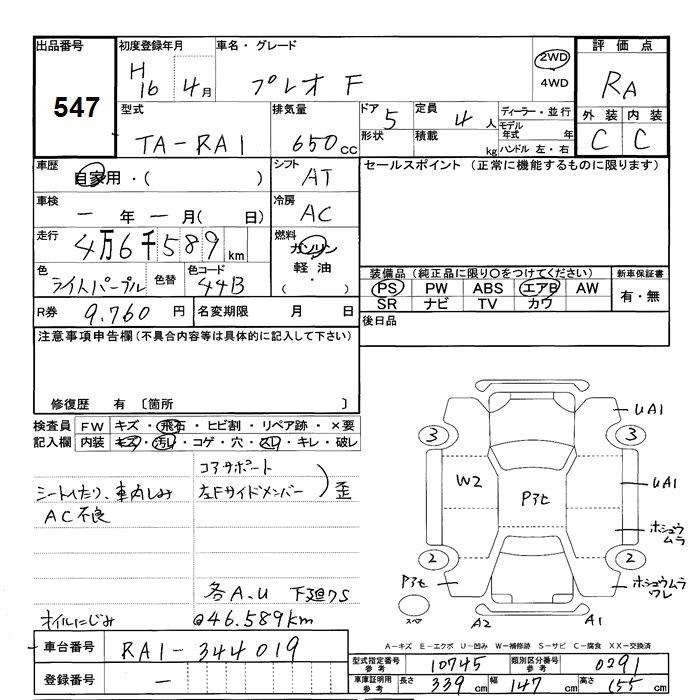 出品番号
547
初度登録年月
H16 4月
車名・グレード
プレオ F
2WD
4WD
評価点
RA
外装 内装
C C
型式
TA-RA1
排気量
650cc
ドア 5
形状
定員 4人
積載 kg
ディーラー・並行
モデル年式 年
ハンドル 左・右
車歴
自家用・( )
シフト
AT
セールスポイント (正常に機能するものに限ります)
車検
一年一月( 日)
冷房
AC
走行
4万6千589km
燃料
ガソリン
軽油
( ・ )
色
ライトパープル
色替
色コード
44B
装備品 (純正品に限り○をつけてください)
PS PW ABS エアB AW
SR ナビ TV カワ
新車保証書
有・無
R券 9.760円
名変期限 月 日
後日品
注意事項申告欄 (不具合内容等は具体的に記入して下さい)
修復歴 有 〔箇所 〕
検査員記入欄
FW キズ・飛石・ヒビ割・リペア跡・×要
内装 キズ・汚れ・コゲ・穴・スレ・キレ・破レ
コアサポート
左Fサイドメンバー ) 歪
シートへたり、車内しみ
AC不良
各A.U 下廻りS
オイルにじみ
@46.589km
車台番号 RA1-344019
登録番号 −
UA1
3 3
W2
Pアセ
UA1
ホシュウムラ
2 2
Pアセ
ホシュウムラワレ
スペ
A2 A1
A−キズ E−エクボ U−凹み W−補修跡 S−サビ C−腐食 XX−交換済
型式指定番号参考 10745
類別区分番号参考 0291
車庫証明用参考 長さ 339cm 幅 147cm 高さ 155cm